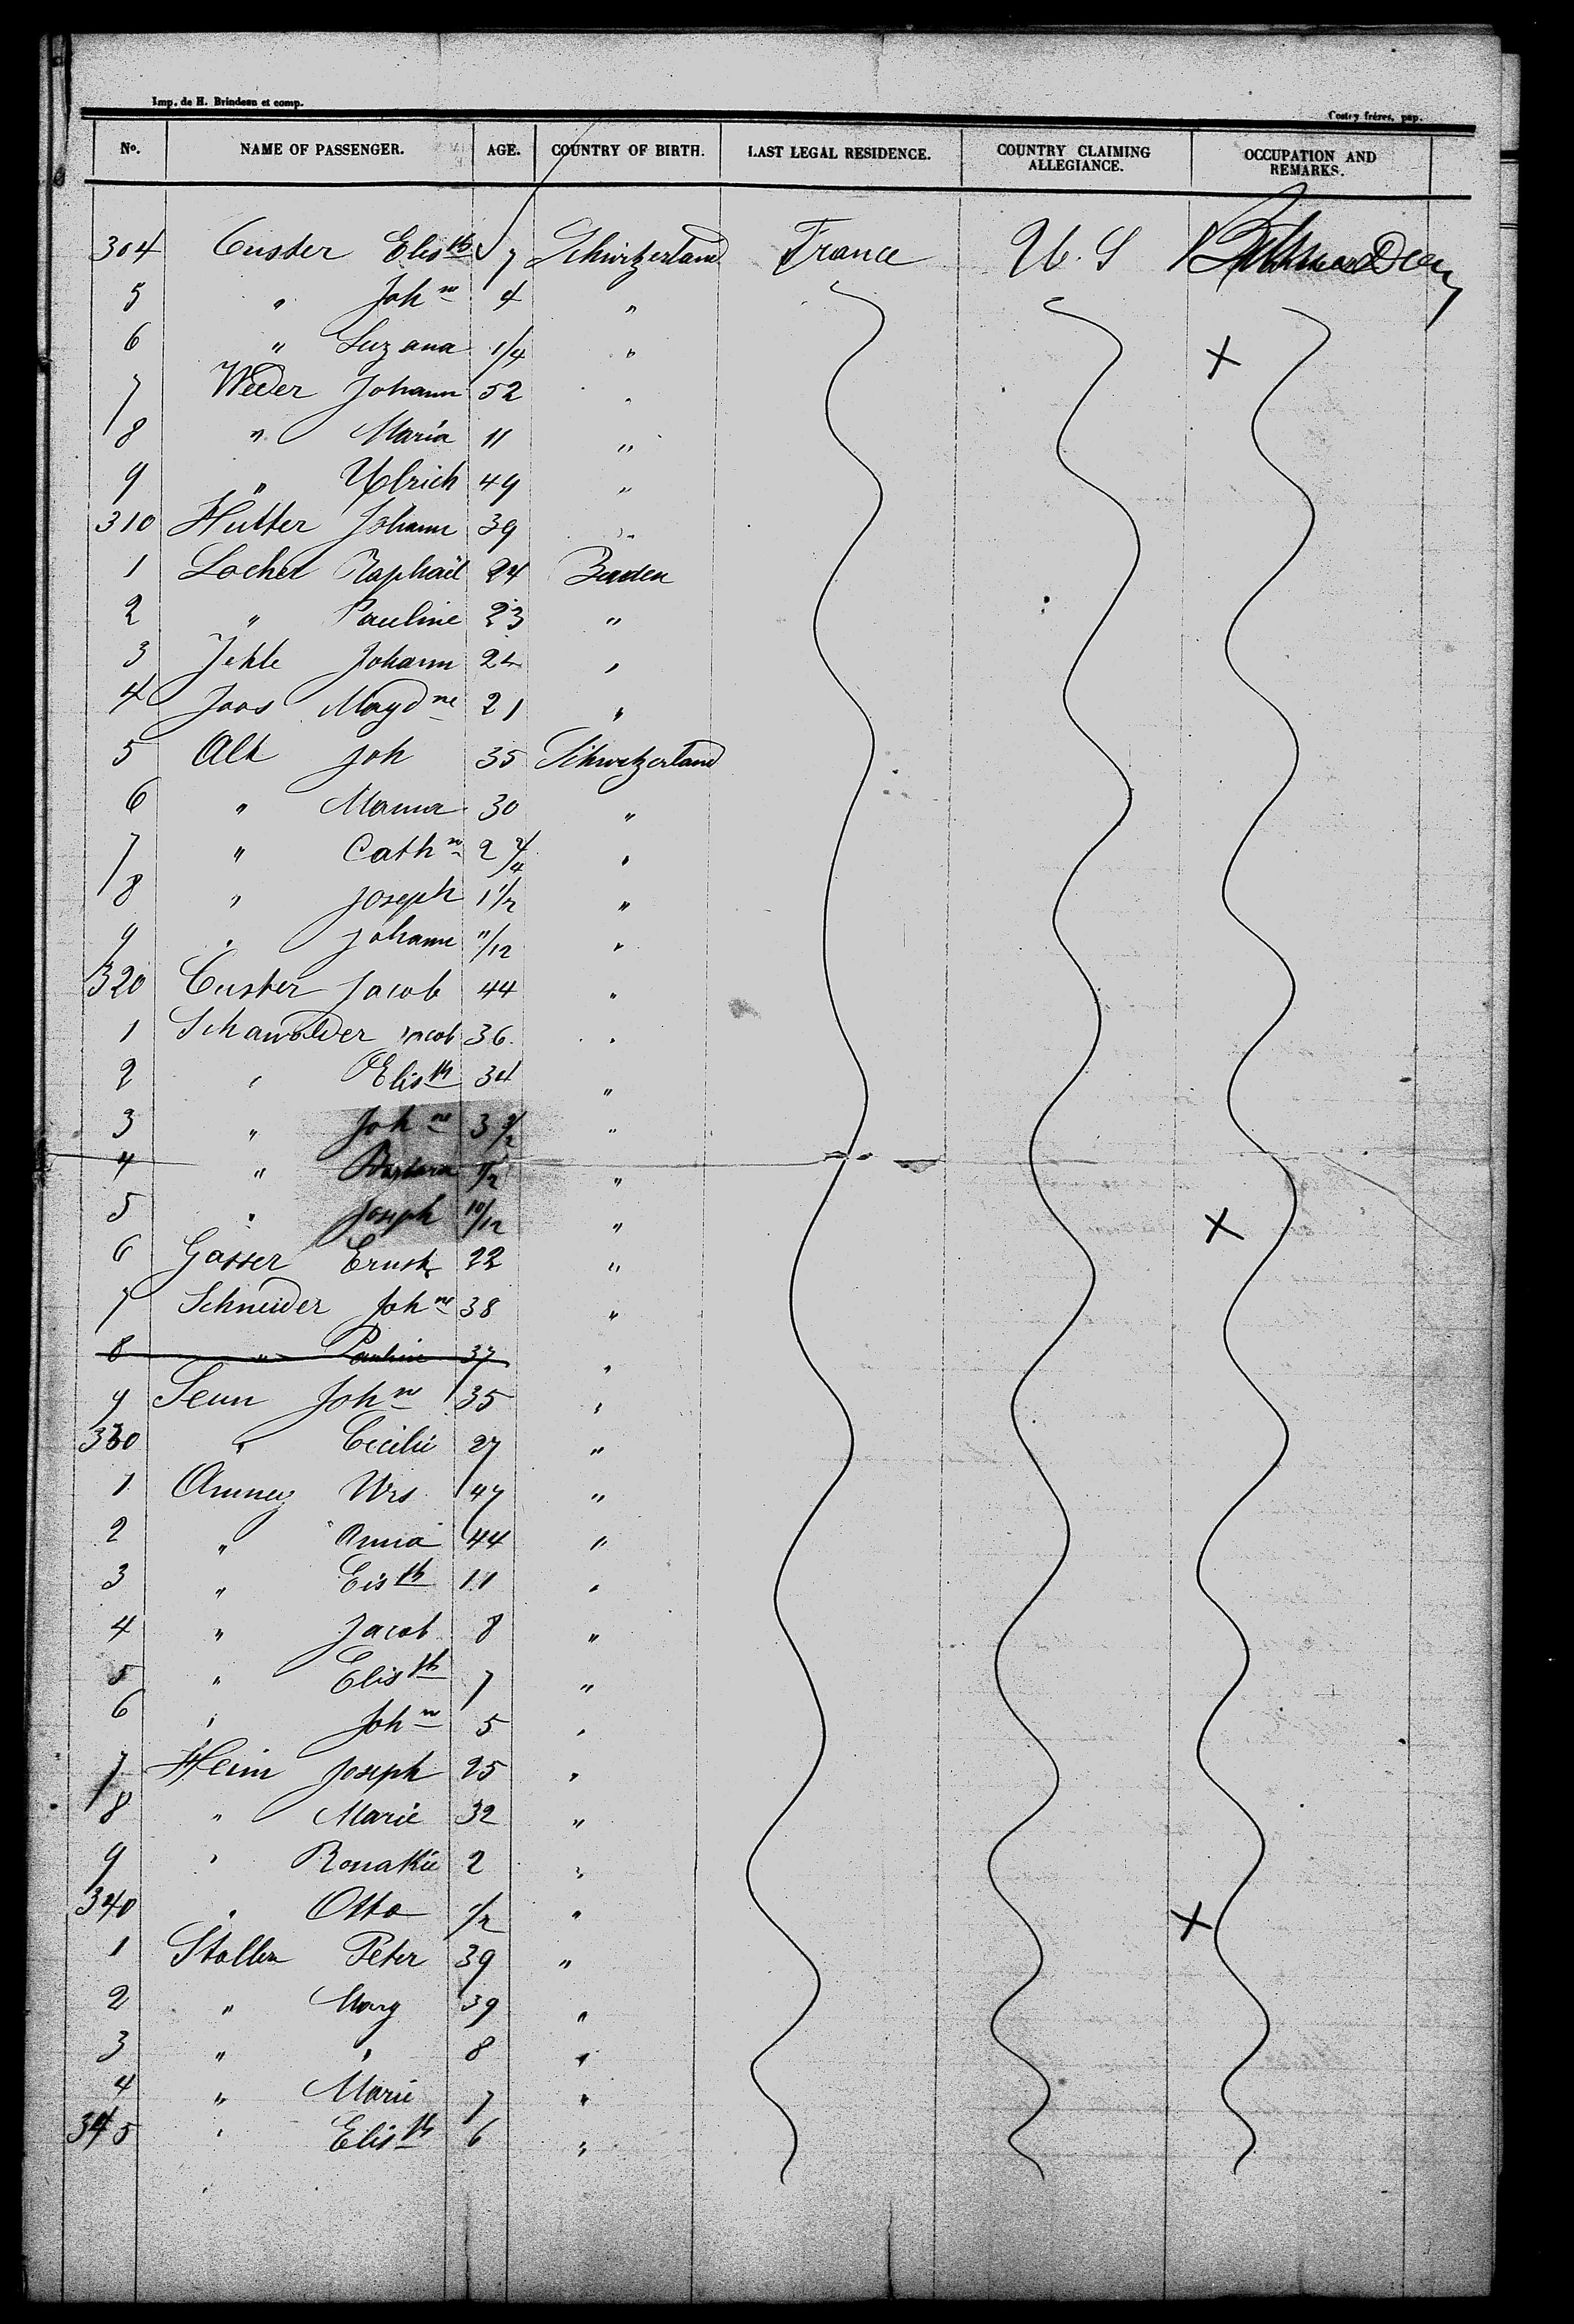 Imp. de H. Brindeau et comp.
Costey frères, pap.
No. NAME OF PASSENGER. AGE. COUNTRY OF BIRTH. LAST LEGAL RESIDENCE. COUNTRY CLAIMING ALLEGIANCE. OCCUPATION AND REMARKS.
304 Custer Elisth 7 Schwitzerland France U. S
5 " Johne 4 "
6 " Suzana 1/4 " X
7 Weder Johann 52 "
8 " Maria 11 "
9 " Ulrich 49 "
310 Hutter Johann 39 "
1 Locher Raphaël 24 Baden
2 " Pauline 23 "
3 Jehle Johann 24 "
4 Joos Magdne 21 "
5 Alt Joh 35 Schwitzerland
6 " 30 "
7 " Cathne 2 "
8 " Joseph 1 1/2 "
9 " Johann 11/12 "
320 Custer Jacob 44 "
1 Schawalder Jacob 36 "
2 " Elisth 34 "
3 " Johne 3 "
4 " Barbara "
5 " Joseph 10/12 " X
6 Gasser Ernst 22 "
7 Schneider Johne 38 "
8 " Pauline 37 "
9 Senn Johne 35 "
330 " Cecilie 27 "
1 Urs 47 "
2 " Anna 44 "
3 " Eisth 11 "
4 " Jacob 8 "
5 " Elisth 7 "
6 " Johne 5 "
7 Heim Joseph 25 "
8 " Marie 32 "
9 " 2 "
340 " Otto 1/2 " X
1 Peter 39 "
2 " Mary 39 "
3 " " 8 "
4 " Marie 7 "
345 " Elisth 6 "